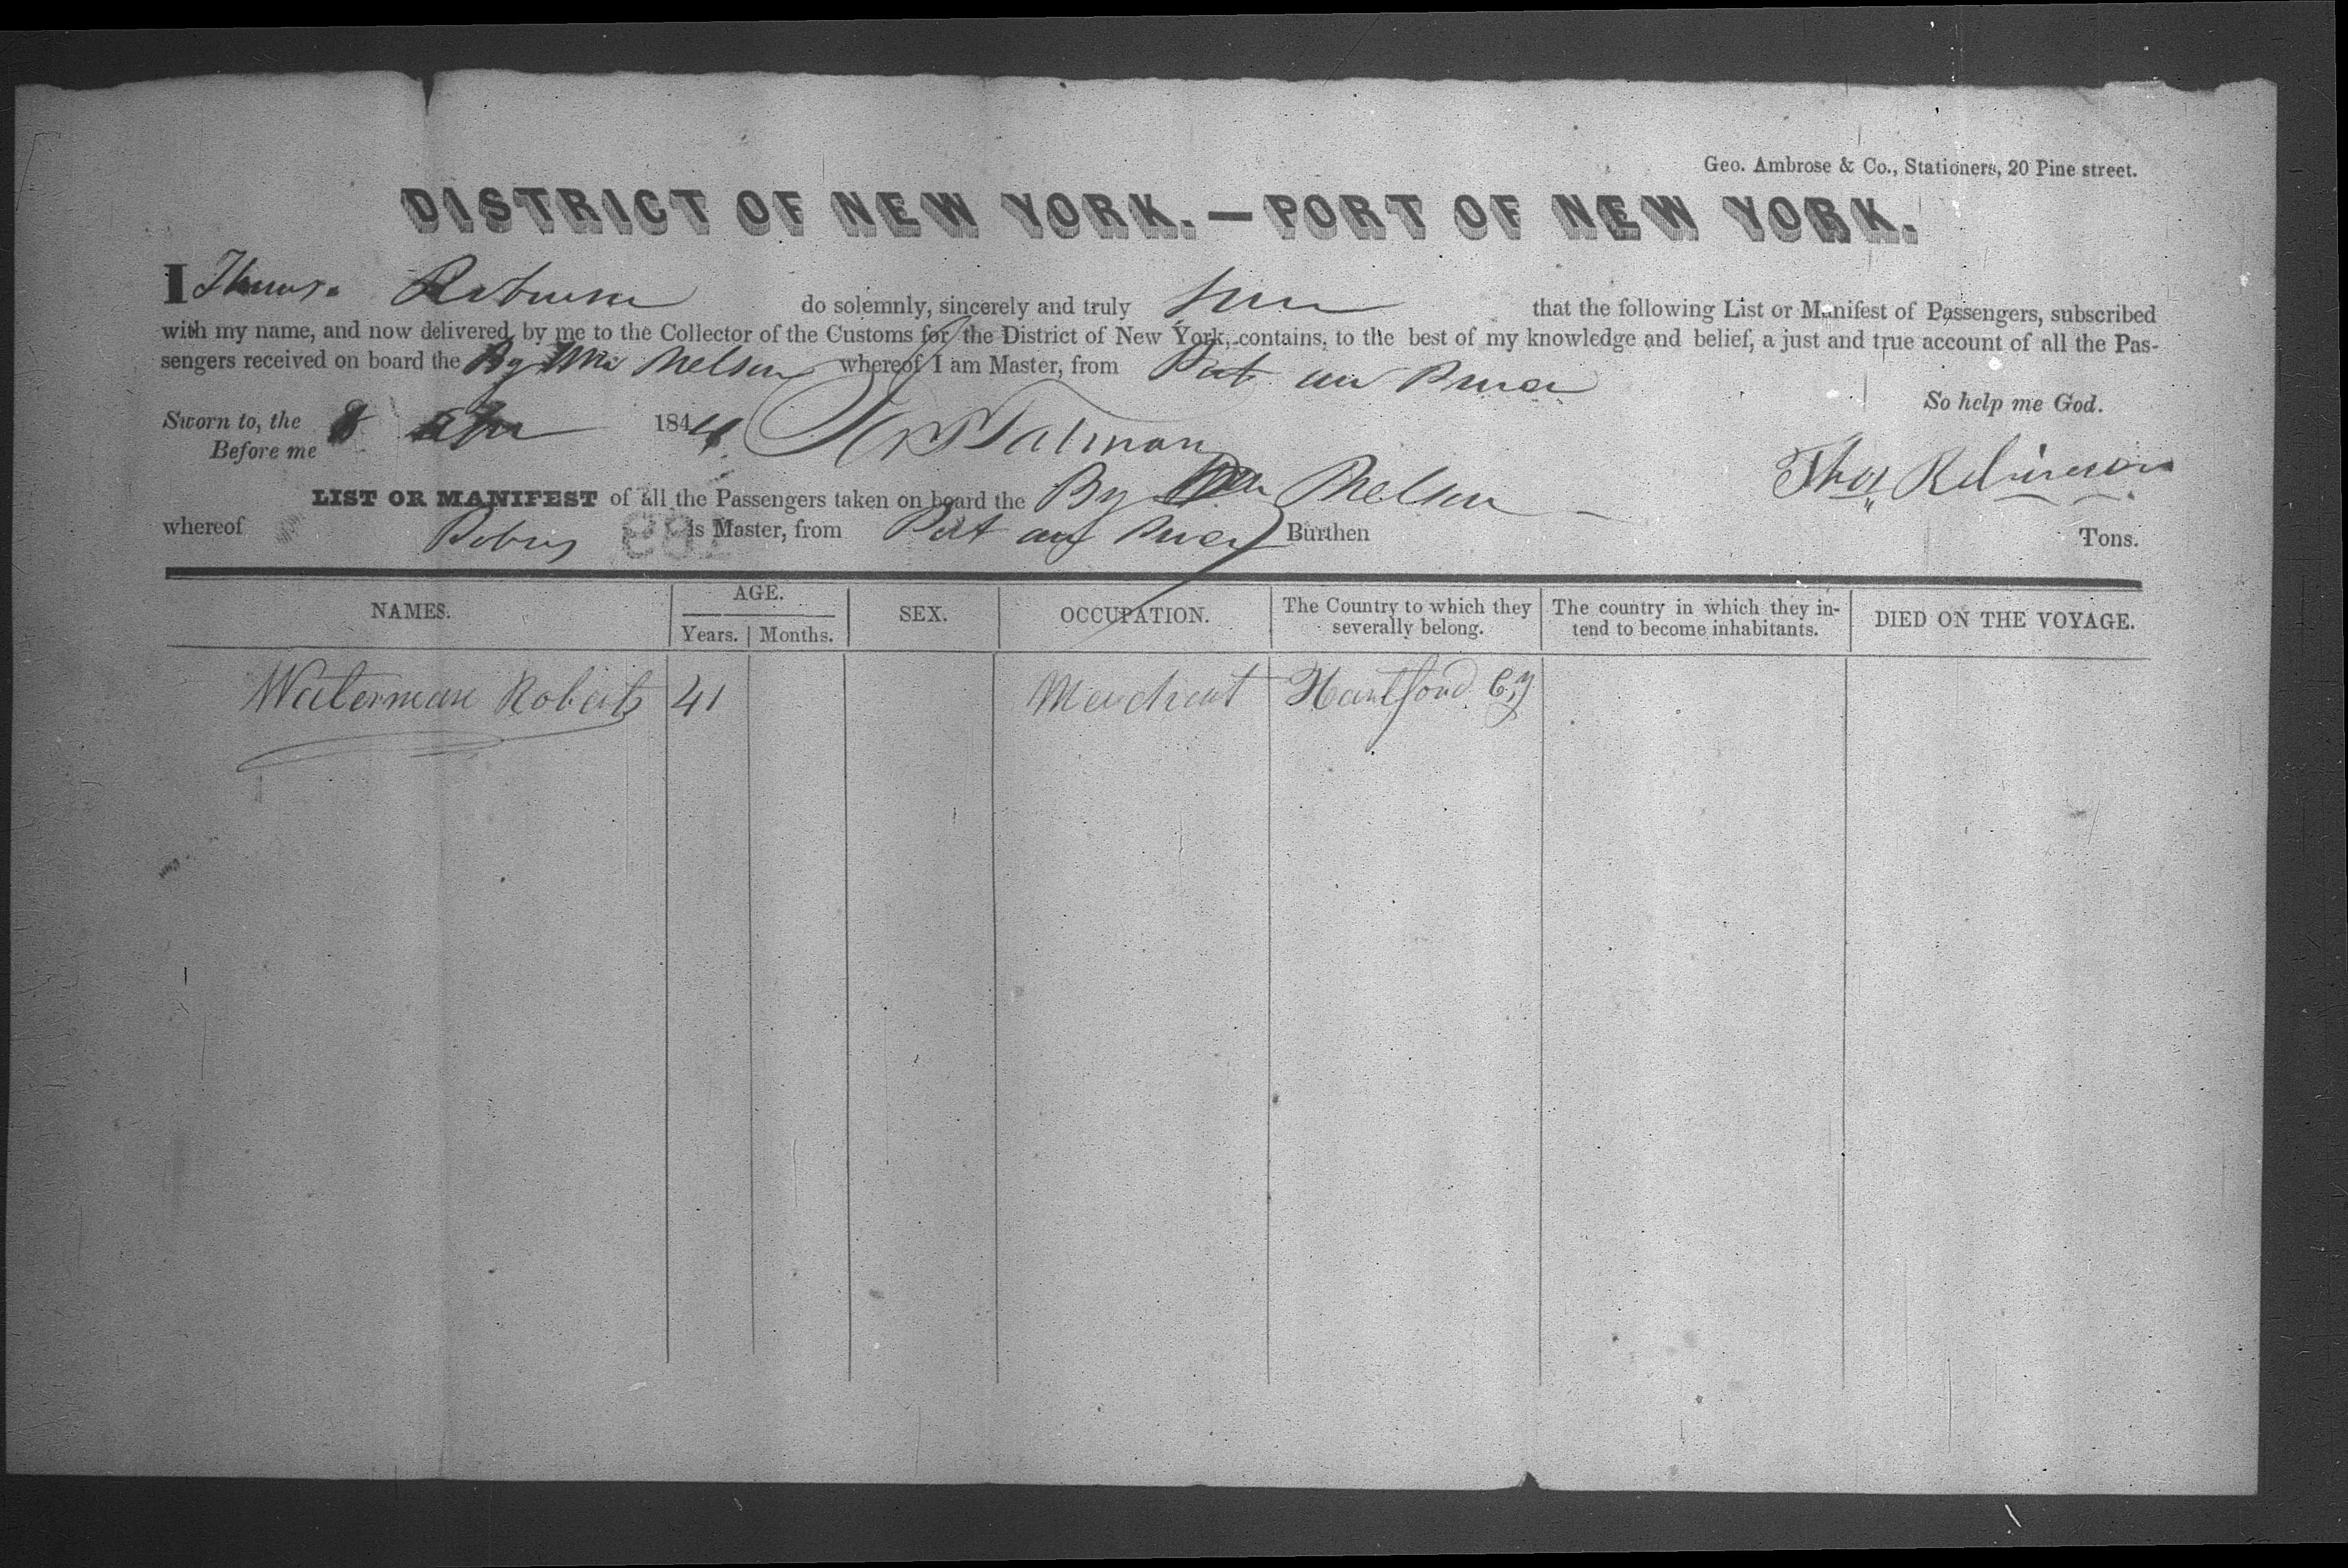 Geo. Ambrose & Co., Stationers, 20 Pine street.
DISTRICT OF NEW YORK.—PORT OF NEW YORK.
I Thomas Robinson do solemnly, sincerely and truly swear that the following List or Manifest of Passengers, subscribed
with my name, and now delivered by me to the Collector of the Customs for the District of New York, contains, to the best of my knowledge and belief, a just and true account of all the Pas-
sengers received on board the Bg Wm Nelson whereof I am Master, from Port au Prince
So help me God.
Sworn to, the 8 Apr 1844
Before me
Thos Robinson
LIST OR MANIFEST of all the Passengers taken on board the Bg Wm Nelson
whereof Robins is Master, from Port au Prince Burthen Tons.
NAMES. AGE. SEX. OCCUPATION. The Country to which they severally belong. The country in which they in- tend to become inhabitants. DIED ON THE VOYAGE.
Years. Months.
Waterman Roberts 41 Merchant Hartford